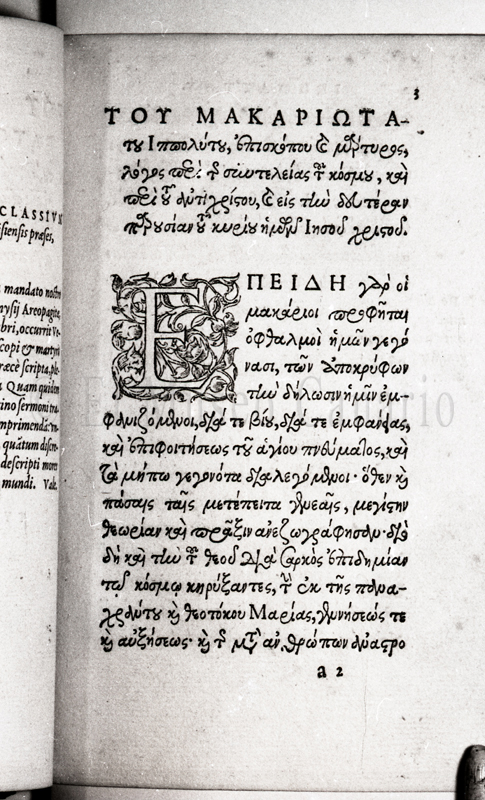 CLASSIVM
siensis præses,
mandato nostro
nysij Areopagitæ,
bri, occurrit Ve-
scopi & martyris
ræcè scripta,
Quam quidem
tino sermoni
mprimenda:
quātum
descripti mores
mundi. Vale.
3
ΤΟΥ ΜΑΚΑΡΙΩΤΑ-
του Ιππολύτου, ἐπισκόπου καὶ μάρτυρος,
λόγος περὶ τῆς συντελείας τοῦ κόσμου, καὶ
περὶ τοῦ ἀντιχρίστου, καὶ εἰς τὴν δευτέραν
παρουσίαν τοῦ κυρίου ἡμῶν Ιησοῦ χριστοῦ.
ΕΠΕΙΔΗ γὰρ οἱ
μακάριοι προφῆται
ὀφθαλμοὶ ἡμῶν γεγό
νασι, τῶν ἀποκρύφων
τὴν δήλωσιν ἡμῖν ἐμ-
φανιζόμενοι, διά τε βίου, διά τε ἐμφάσεως,
καὶ ἐπιφοιτήσεως τοῦ ἁγίου πνεύματος, καὶ
τὰ μήπω γεγονότα διαλεγόμενοι· ὅθεν καὶ
πάσαις ταῖς μετέπειτα γενεαῖς, μεγίστην
θεωρίαν καὶ πρᾶξιν ἀνεζωγράφησαν· διὸ
δὴ καὶ τὴν τοῦ θεοῦ διὰ σαρκὸς ἐπιδημίαν
τῷ κόσμῳ κηρύξαντες, τῆς ἐκ τῆς πανα-
χράντου καὶ θεοτόκου Μαρίας, γεννήσεώς τε
καὶ αὐξήσεως· καὶ τῆς μετὰ ἀνθρώπων ἀναστρο
a 2